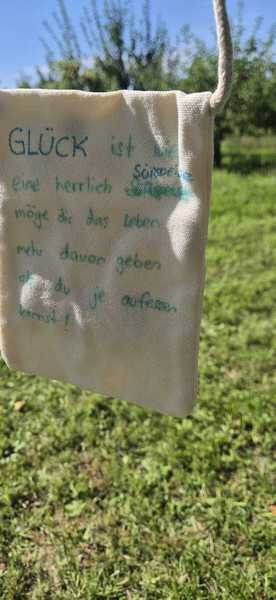 GLÜCK ist wie
SÜSSPEISE
eine herrlich
möge dir das Leben
mehr davon geben
als du je aufessen
kannst!